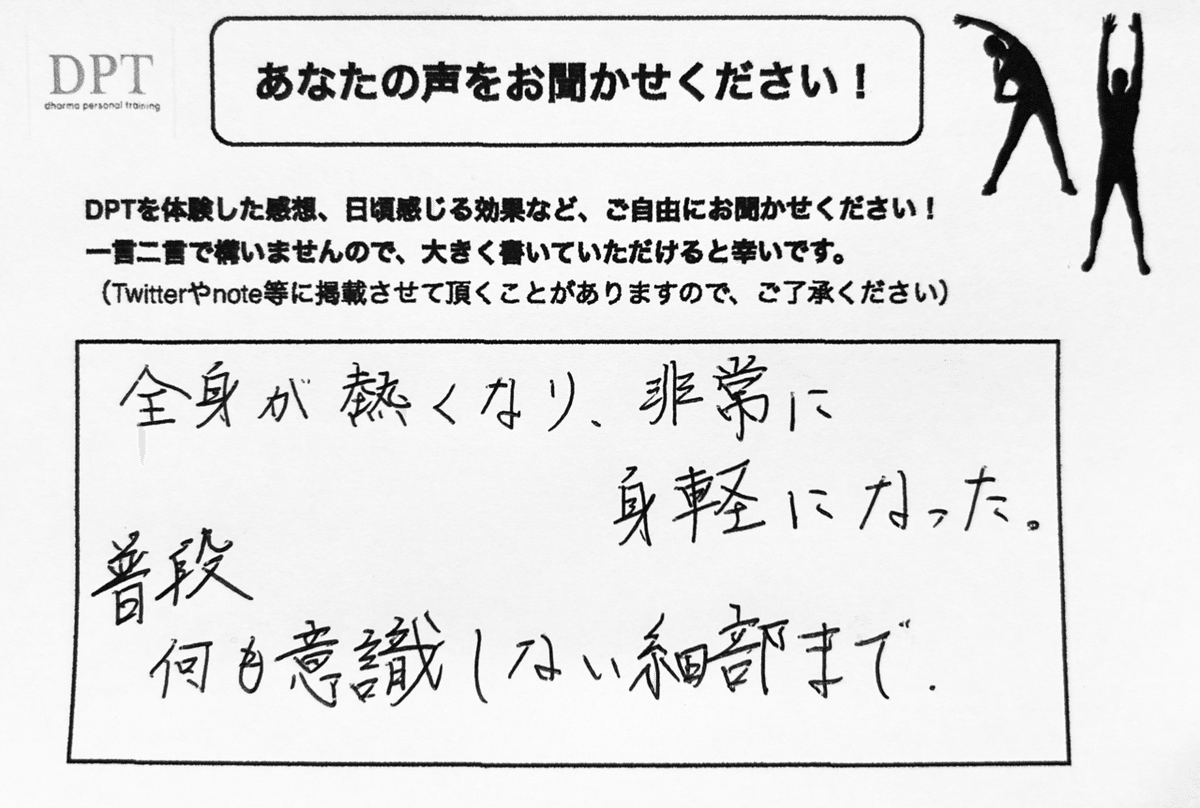 DPT
dharma personal training
あなたの声をお聞かせください！
DPTを体験した感想、日頃感じる効果など、ご自由にお聞かせください！
一言二言で構いませんので、大きく書いていただけると幸いです。
（Twitterやnote等に掲載させて頂くことがありますので、ご了承ください）
全身が熱くなり、非常に
身軽になった。
普段
何も意識しない細部まで.